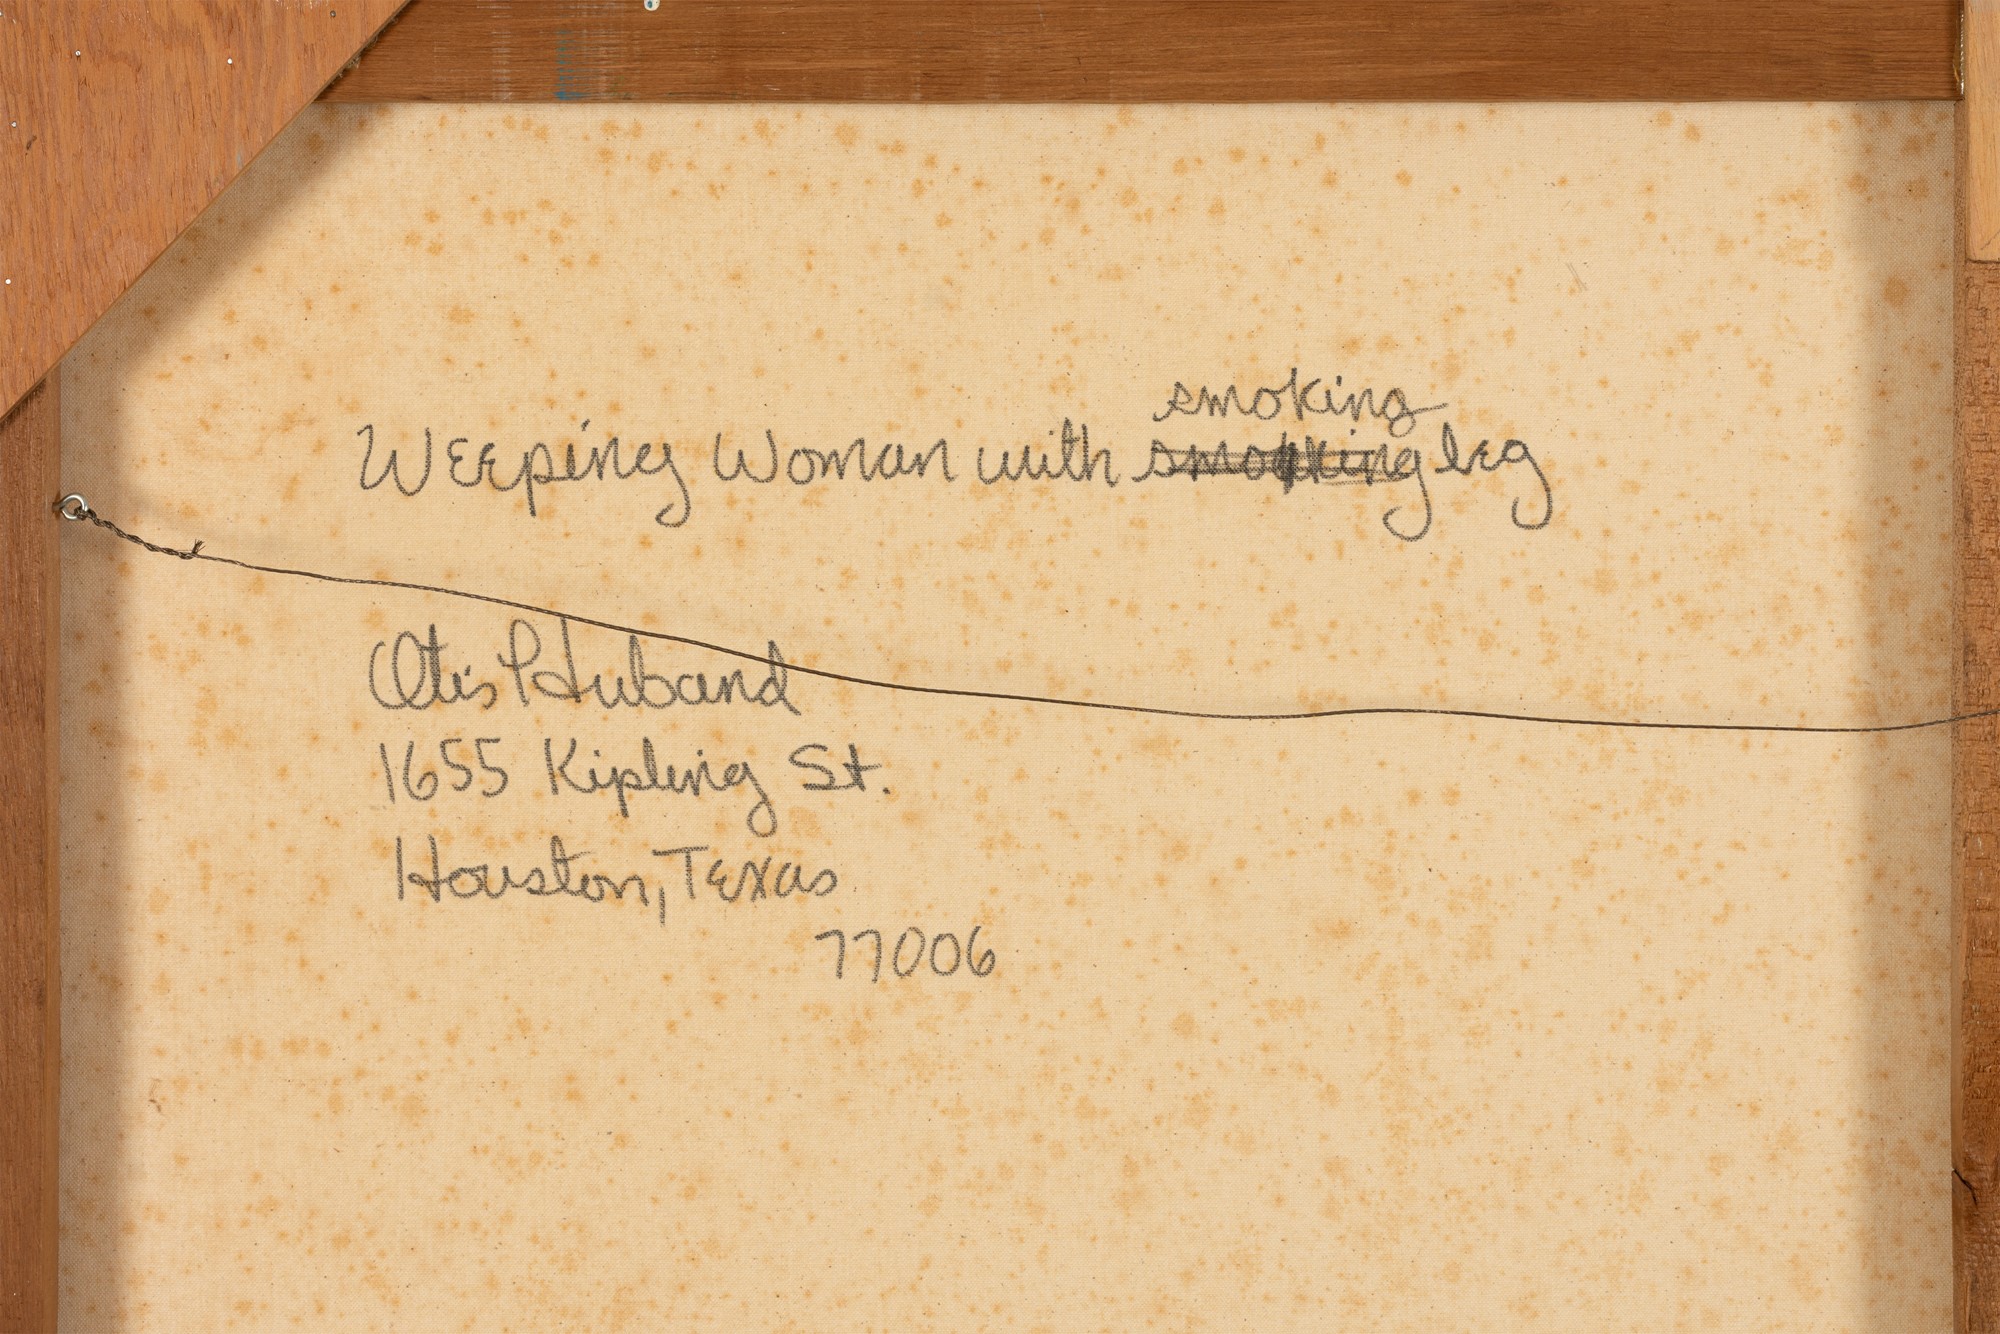 smoking
Weeping Woman with smoking leg
Otis Huband
1655 Kipling St.
Houston, Texas
77006